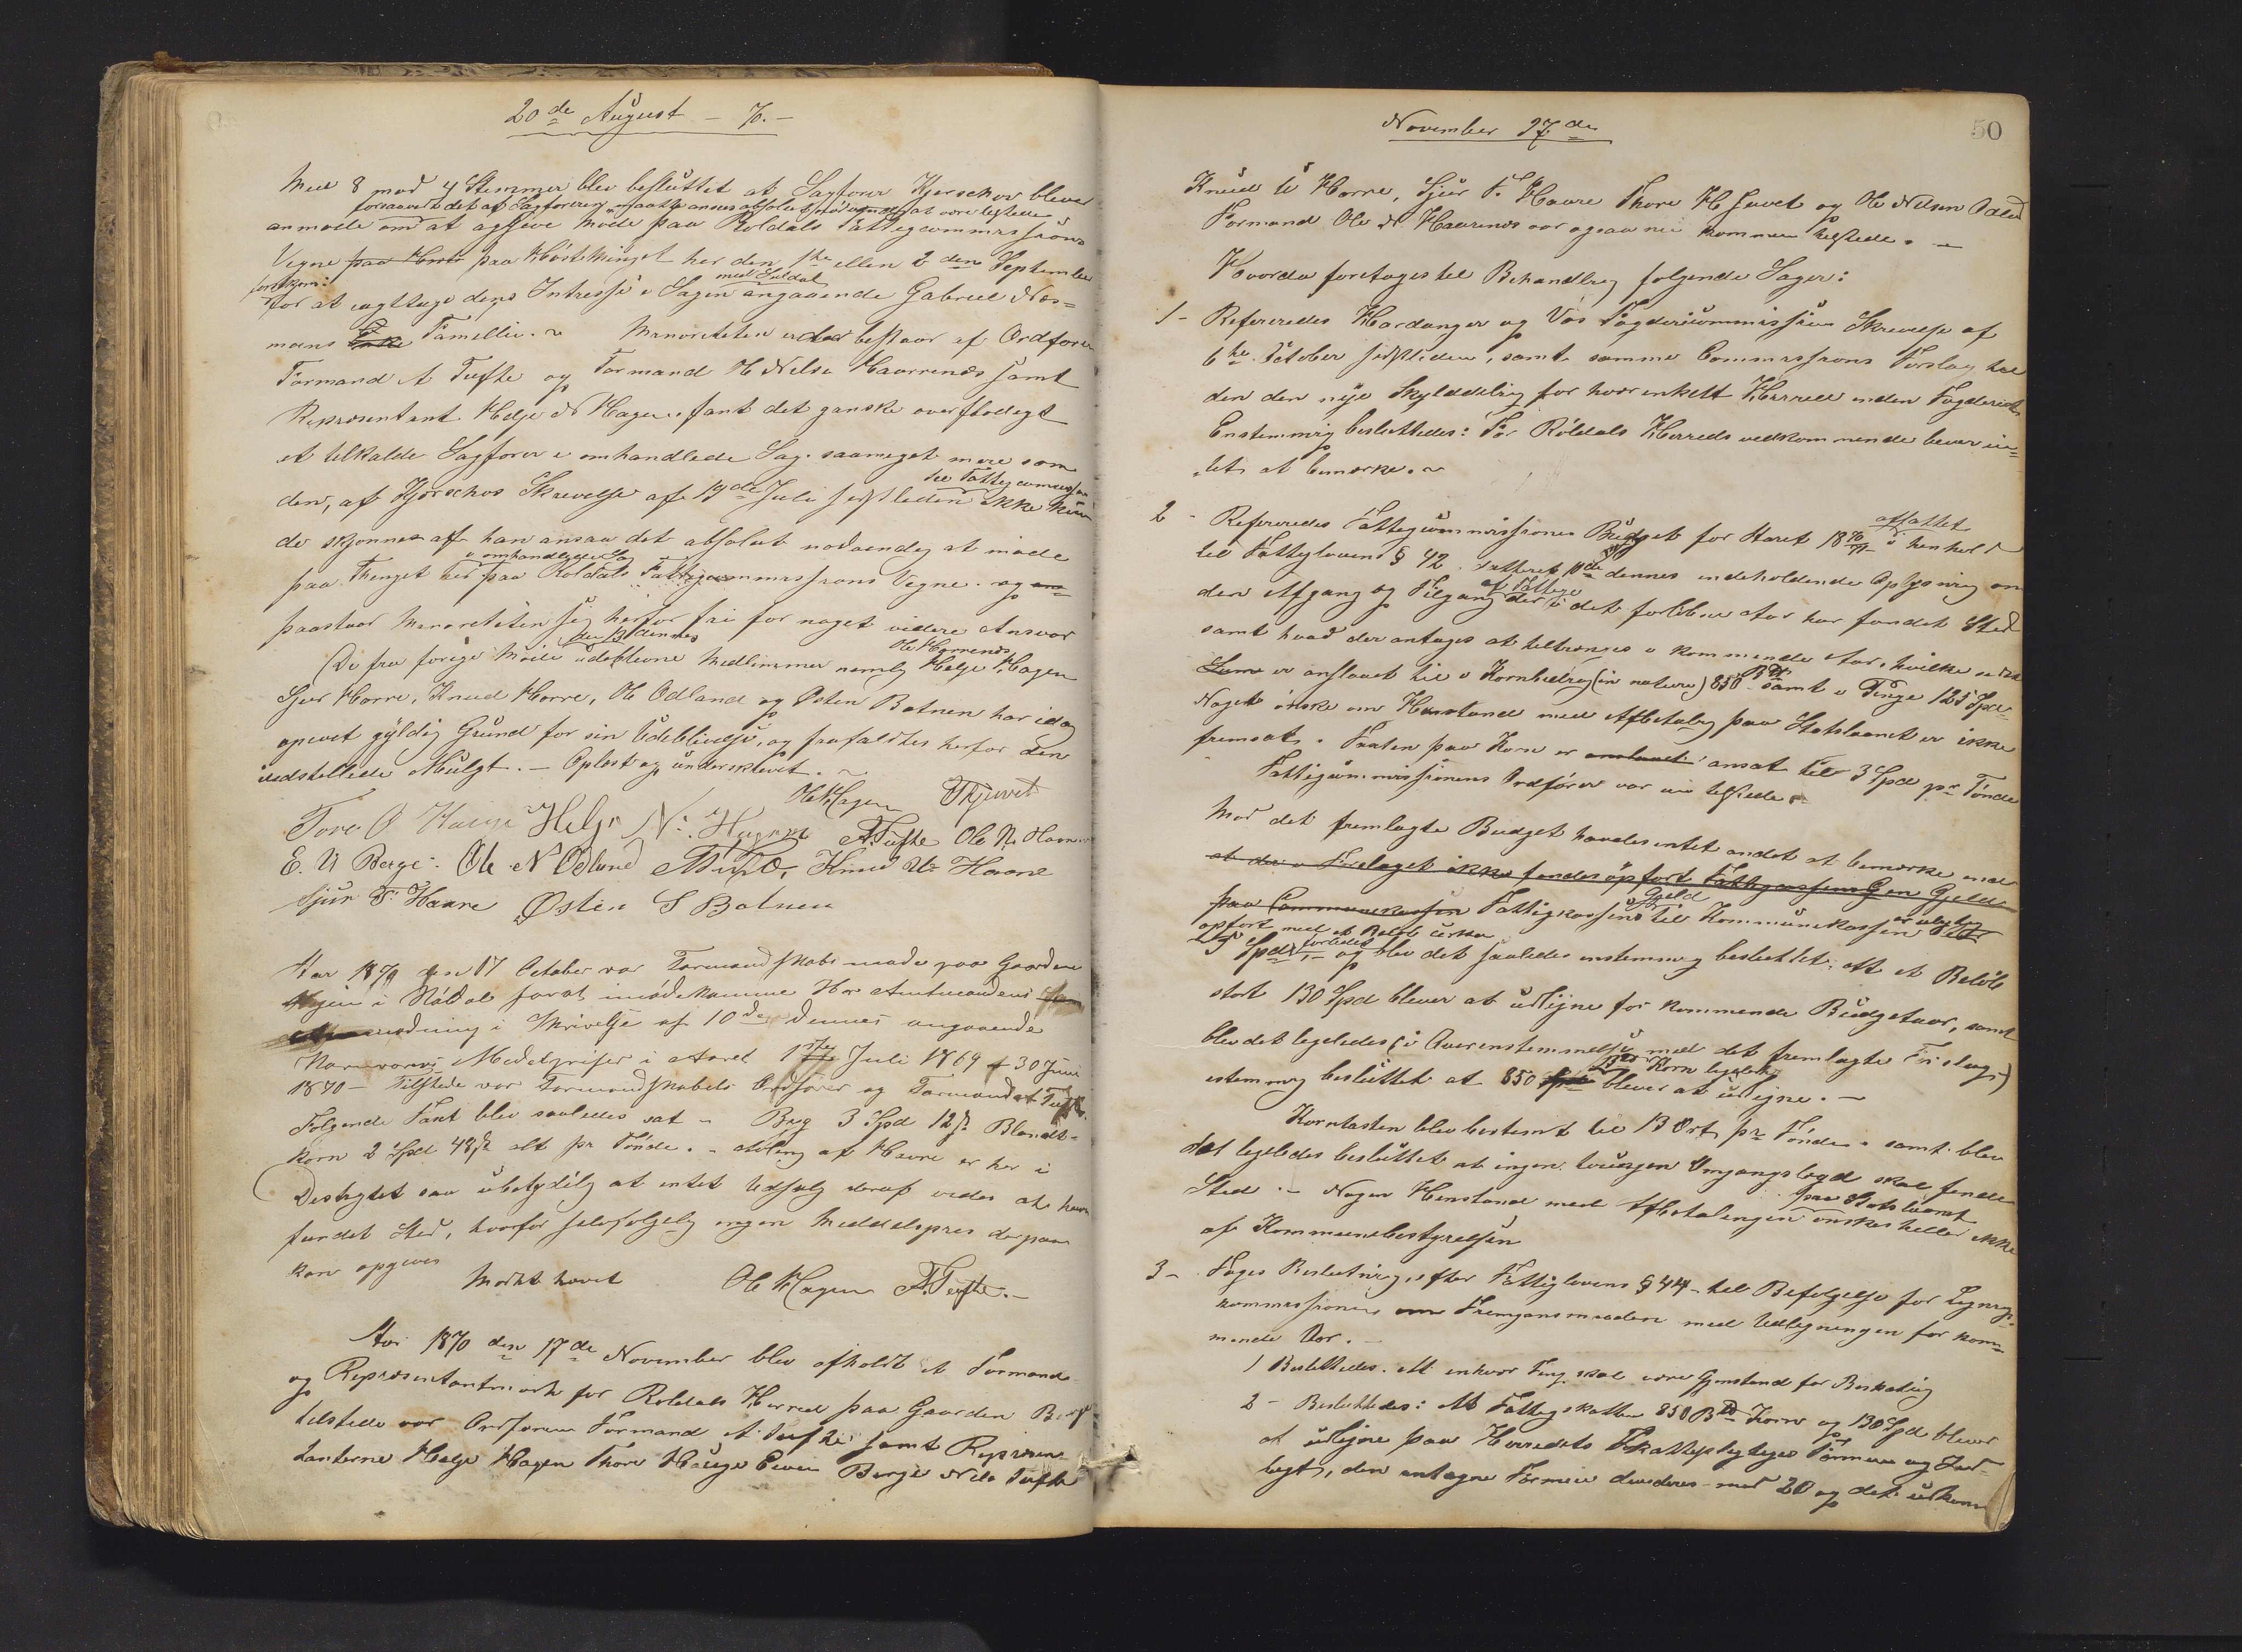 20de August - 70.-
Med 8 mod 4 Stemmer blev besluttet at Sagfører Kjerschow bliver
forsaavidt det af Sagføreren maatte ansees absolut nødvendigt at være tilstede
anmode om at afgive møde paa Roldals Fattigcommissions
Vegne paa Høstthinget her den 1ste eller 2den September
førstkom:
for at iagttage dens Intresse i Sagen med Suldal angaaende Gabriel Nes-
mans Enke Familie. ~ Menoriteten der bestaar af Ordfører
Formand A Tufte og Formand O Nelse Haarenes samt
Representant Helge N Hagen. fant det ganske overflødigt
at tilkalde Sagfører i omhandlede Sag. saameget mere som
den, af Kjerschos Skrevelse af 19de Juli sidstleden til Fattigcommission ikke kun-
de skjønnes at han ansaa det absolut nødvendig at møde
i omhandlede Sag
paa Thinget her paa Roldals Fattigcommissions Vegne. og
paastaar Menoriteten sig herfor fri for noget videre Ansvar
De fra forige Møde den 13 dennes udeblevne Medlimmer nemlig Helge Hagen Ole Haarenes
Sjur Horre, Knud Horre, Ole Odland og Østen Botnen har idag
opievet gyldig Grund for sin Udeblivelse, og frafaldtes herfor den
idedstillede Mulgt. - Oplæst og underskrevet. ~
O Hagen T Juvet
Tore O Hauge Helge N. Hagen A. Tufte Ole N. Haarenes
E. N Berge. Ole N Odland N Tufte, Knud U. Haare
Sjur F. Haare Østen S Botnen
Aar 1870 den 17 October var Formandskabsmøde paa Gaarden
Hagen i Røldal forat imødekomme Hr Amtmandens
Anmodning i Skrivelse af 10de dennes angaaende
Kornvarers Medelpriser i Aaret 1ste Juli 1869 - 30 Juni
1870 - Tilstede var Formandskabets Ordfører og Formand A Tufte.
Følgende Fant blev saaledes sat - Byg 3 Spd 12 s Blandt-
korn 2 Spd 48 s alt pr Tønde. - Avling af Havre er her i
Destrigtet saa ubetydelig at intet Udsalg deraf vides at have
fundet sted, hvorfor selvfølgelig ingen Meddelspris derpaa
kan opgives
Mødet hævet O Hagen A. Tufte.-
Aar 1870 den 17de November blev afholdt et Formand-
og Representantmøde for Roldals Herred paa Gaarden Berge
tilstede var Ordføreren Formand A. Tufte samt Represen-
tanterne Helge Hagen Thore Hauge Even Berge Nils Tufte
November 17de
50
Knud U Horre, Sjur F. Haare Thore H Juvet og Ole Nelsen Odland
Formand Ole N. Haarenes var ogsaa nu kommen tilstede. -
Hvorda foretages til Behandling følgende Sager:
1 - Refereredes Hardanger og Vos Fogdericommissions Skrevelse af
6te October sidstleden, samt samme Commissions Forslag til
den den nye Skylddeling for hvert enkelt Herred inden Fogderiet
Enstemmig besluttedes: For Røldals Herreds vedkommende bliver in-
tet at bemærke. ~
2 - Refereredes Fattigcommissionens Budget for Aaret 18 70/71 affattet i henhold
til Fattiglovens § 42. dateret dennes indeholdende Oplysning om
den Afgang og Tilgang af Fattige der i det forløbne Aar har fundet Sted
samt hvad der antages at tiltrænges i kommende Aar, hvilke
Sum er anslaaet til i Kornbidrag (in natura) 850 Bd samt i Penge 125 Spd.
Noget ønske om Henstand med Afbetaling paa Statslaanet er ikke
fremsat. Taxten paa Korn er anslaaet ansat til 3 Spd pr Tønde
Fattigcommissionens Ordfører var nu tilstede.
Mod det fremlagte Budget havdes intet andet at bemærke end
at der i Forslaget ikke fandes opført Fattigcassens Gjeld
paa Communekassen Fattigkassens Gjeld til Kommunekassen er
opført med et Beløb cirka
25 Spd og blev det saaledes enstemmig besluttet: at et Beløb
stort 130 Spd bliver at udligne for kommende Budgetaar, samt
blev det ligeledes (i Overenstemmelse med det fremlagte Forslag)
estemmig besluttet at 850 Bd Korn ligeledes bliver at udligne. -
Korntaxten blev bestemt til 13 Ort pr Tønde. samt blev
det ligeledes besluttet at ingen tvungen Omgangslægd skal finde
Sted. - Nogen Henstand med Afbetalingen paa Statslaanet ønskes heller ikke
af Kommunebestyrelsen
3 - Toges Beslutning efter Fattiglovens § 44 - til Befølgelse for Lignings-
kommissionen om Fremgansmaaden med Udligningen for kom-
mende Aar. -
1 Besluttedes. At enhver Ting skal være Gjenstand for Beskatning
2 - Besluttedes: At Fattigskatten 850 Bd Korn og 130 Spd bliver
at udligne paa Herredets Skattepligtiges Formue og Ind-
tægt, den antagne Formue divideres med 20 og det udkom